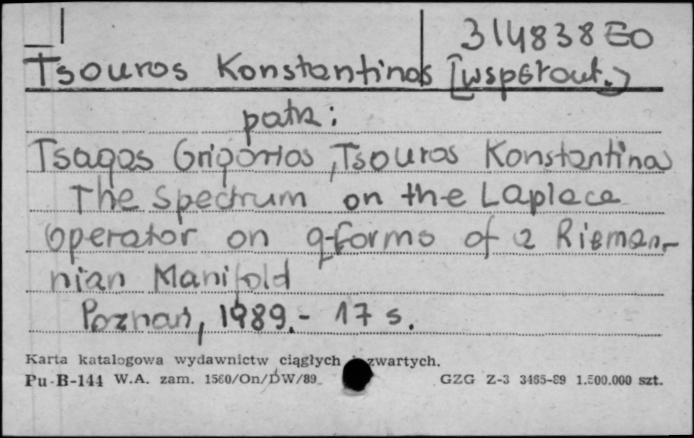 314838 EO
Tsouros Konstantinos [współaut.]
patrz:
Tsagas Grigorios, Tsouros Konstantinos
The Spectrum on the Laplace
operator on q-forms of a Rieman-
nian Manifold
Poznań, 1989.- 17 s.
Karta katalogowa wydawnictw ciągłych i zwartych.
Pu-B-144 W.A. zam. 1560/On/DW/89 GZG Z-3 3465-89 1.500.000 szt.